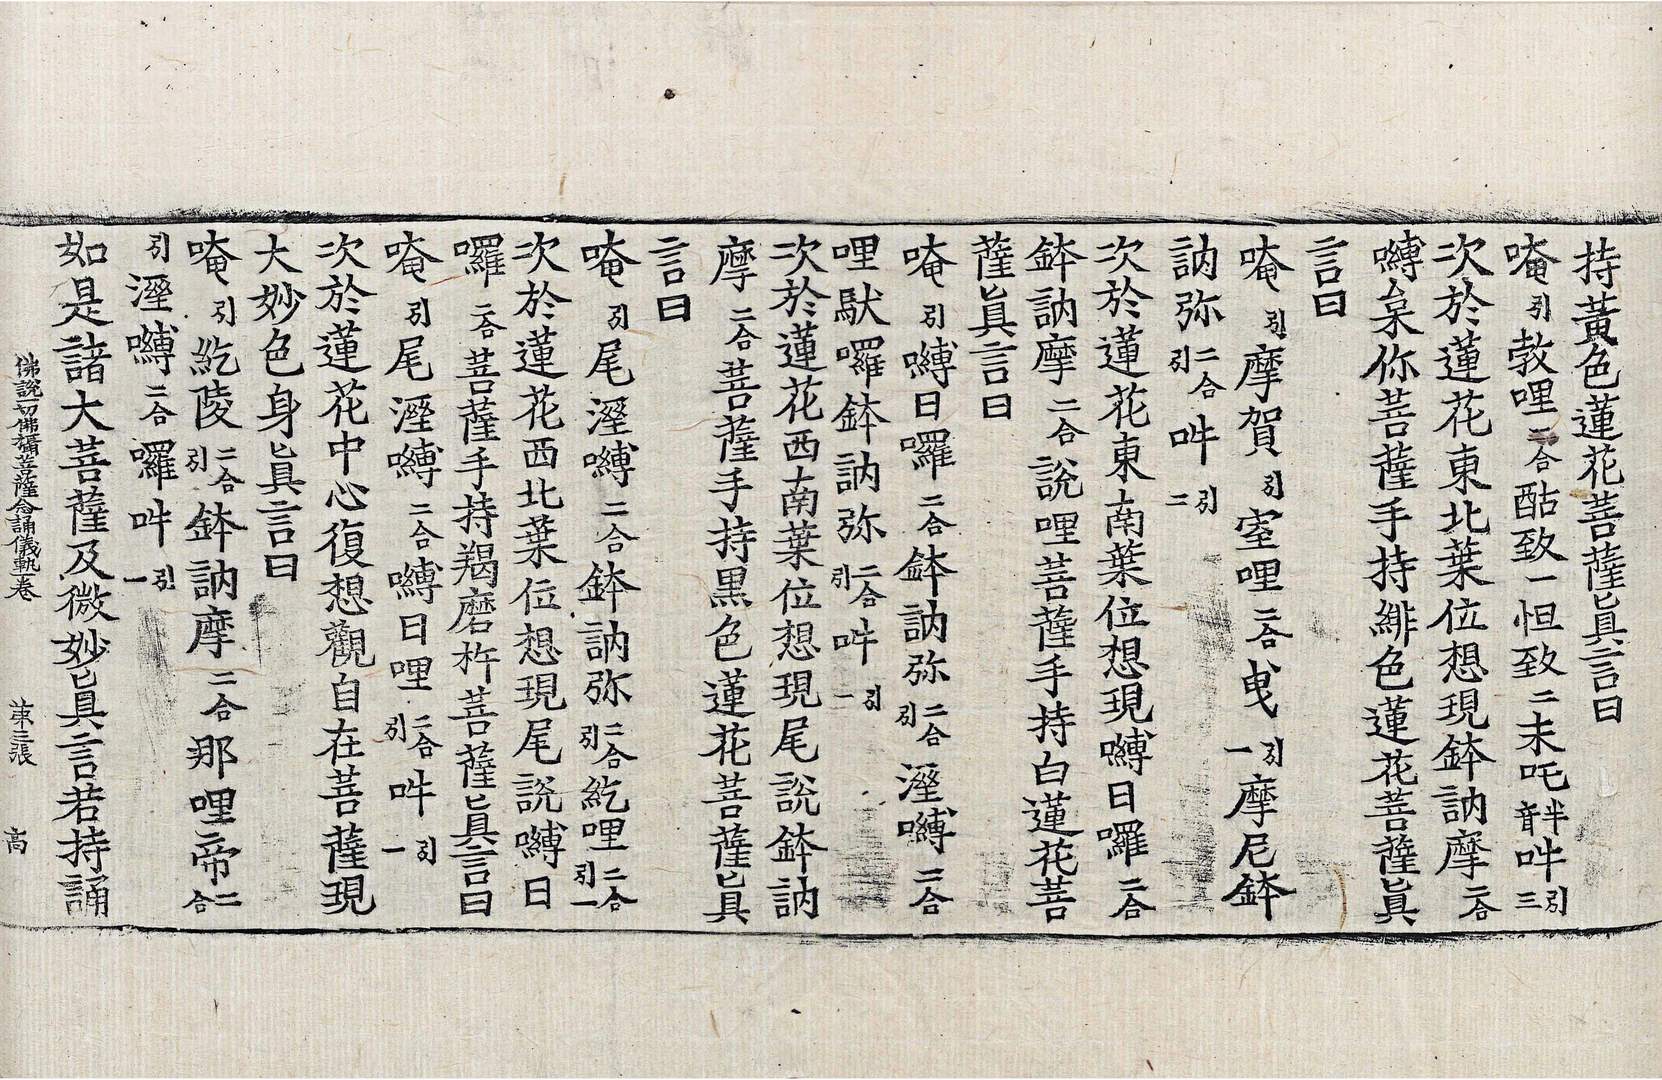 持黃色蓮花菩薩眞言曰
唵引㪍哩二合酤致一怛致二末吒半音吽引三
次於蓮花東北葉位想現鉢訥摩二合
嚩枲你菩薩手持緋色蓮花菩薩眞
言曰
唵引摩賀引室哩二合曳引一摩尼鉢
訥弥二合引吽引二
次於蓮花東南葉位想現嚩日囉二合
鉢訥摩二合說哩菩薩手持白蓮花菩
薩眞言曰
唵引嚩日囉二合鉢訥弥二合引溼嚩二合
哩馱囉鉢訥弥二合引吽引一
次於蓮花西南葉位想現尾說鉢訥
摩二合菩薩手持黑色蓮花菩薩眞
言曰
唵引尾溼嚩二合鉢訥弥二合引紇哩二合引一
次於蓮花西北葉位想現尾說嚩日
囉二合菩薩手持羯磨杵菩薩眞言曰
唵引尾溼嚩二合嚩日哩二合引吽引一
次於蓮花中心復想觀自在菩薩現
大妙色身眞言曰
唵引紇陵二合引鉢訥摩二合那哩帝二合
引溼嚩二合囉吽引一
如是諸大菩薩及微妙眞言若持誦
佛說一切佛攝菩薩念誦儀軌卷 苐三張 高